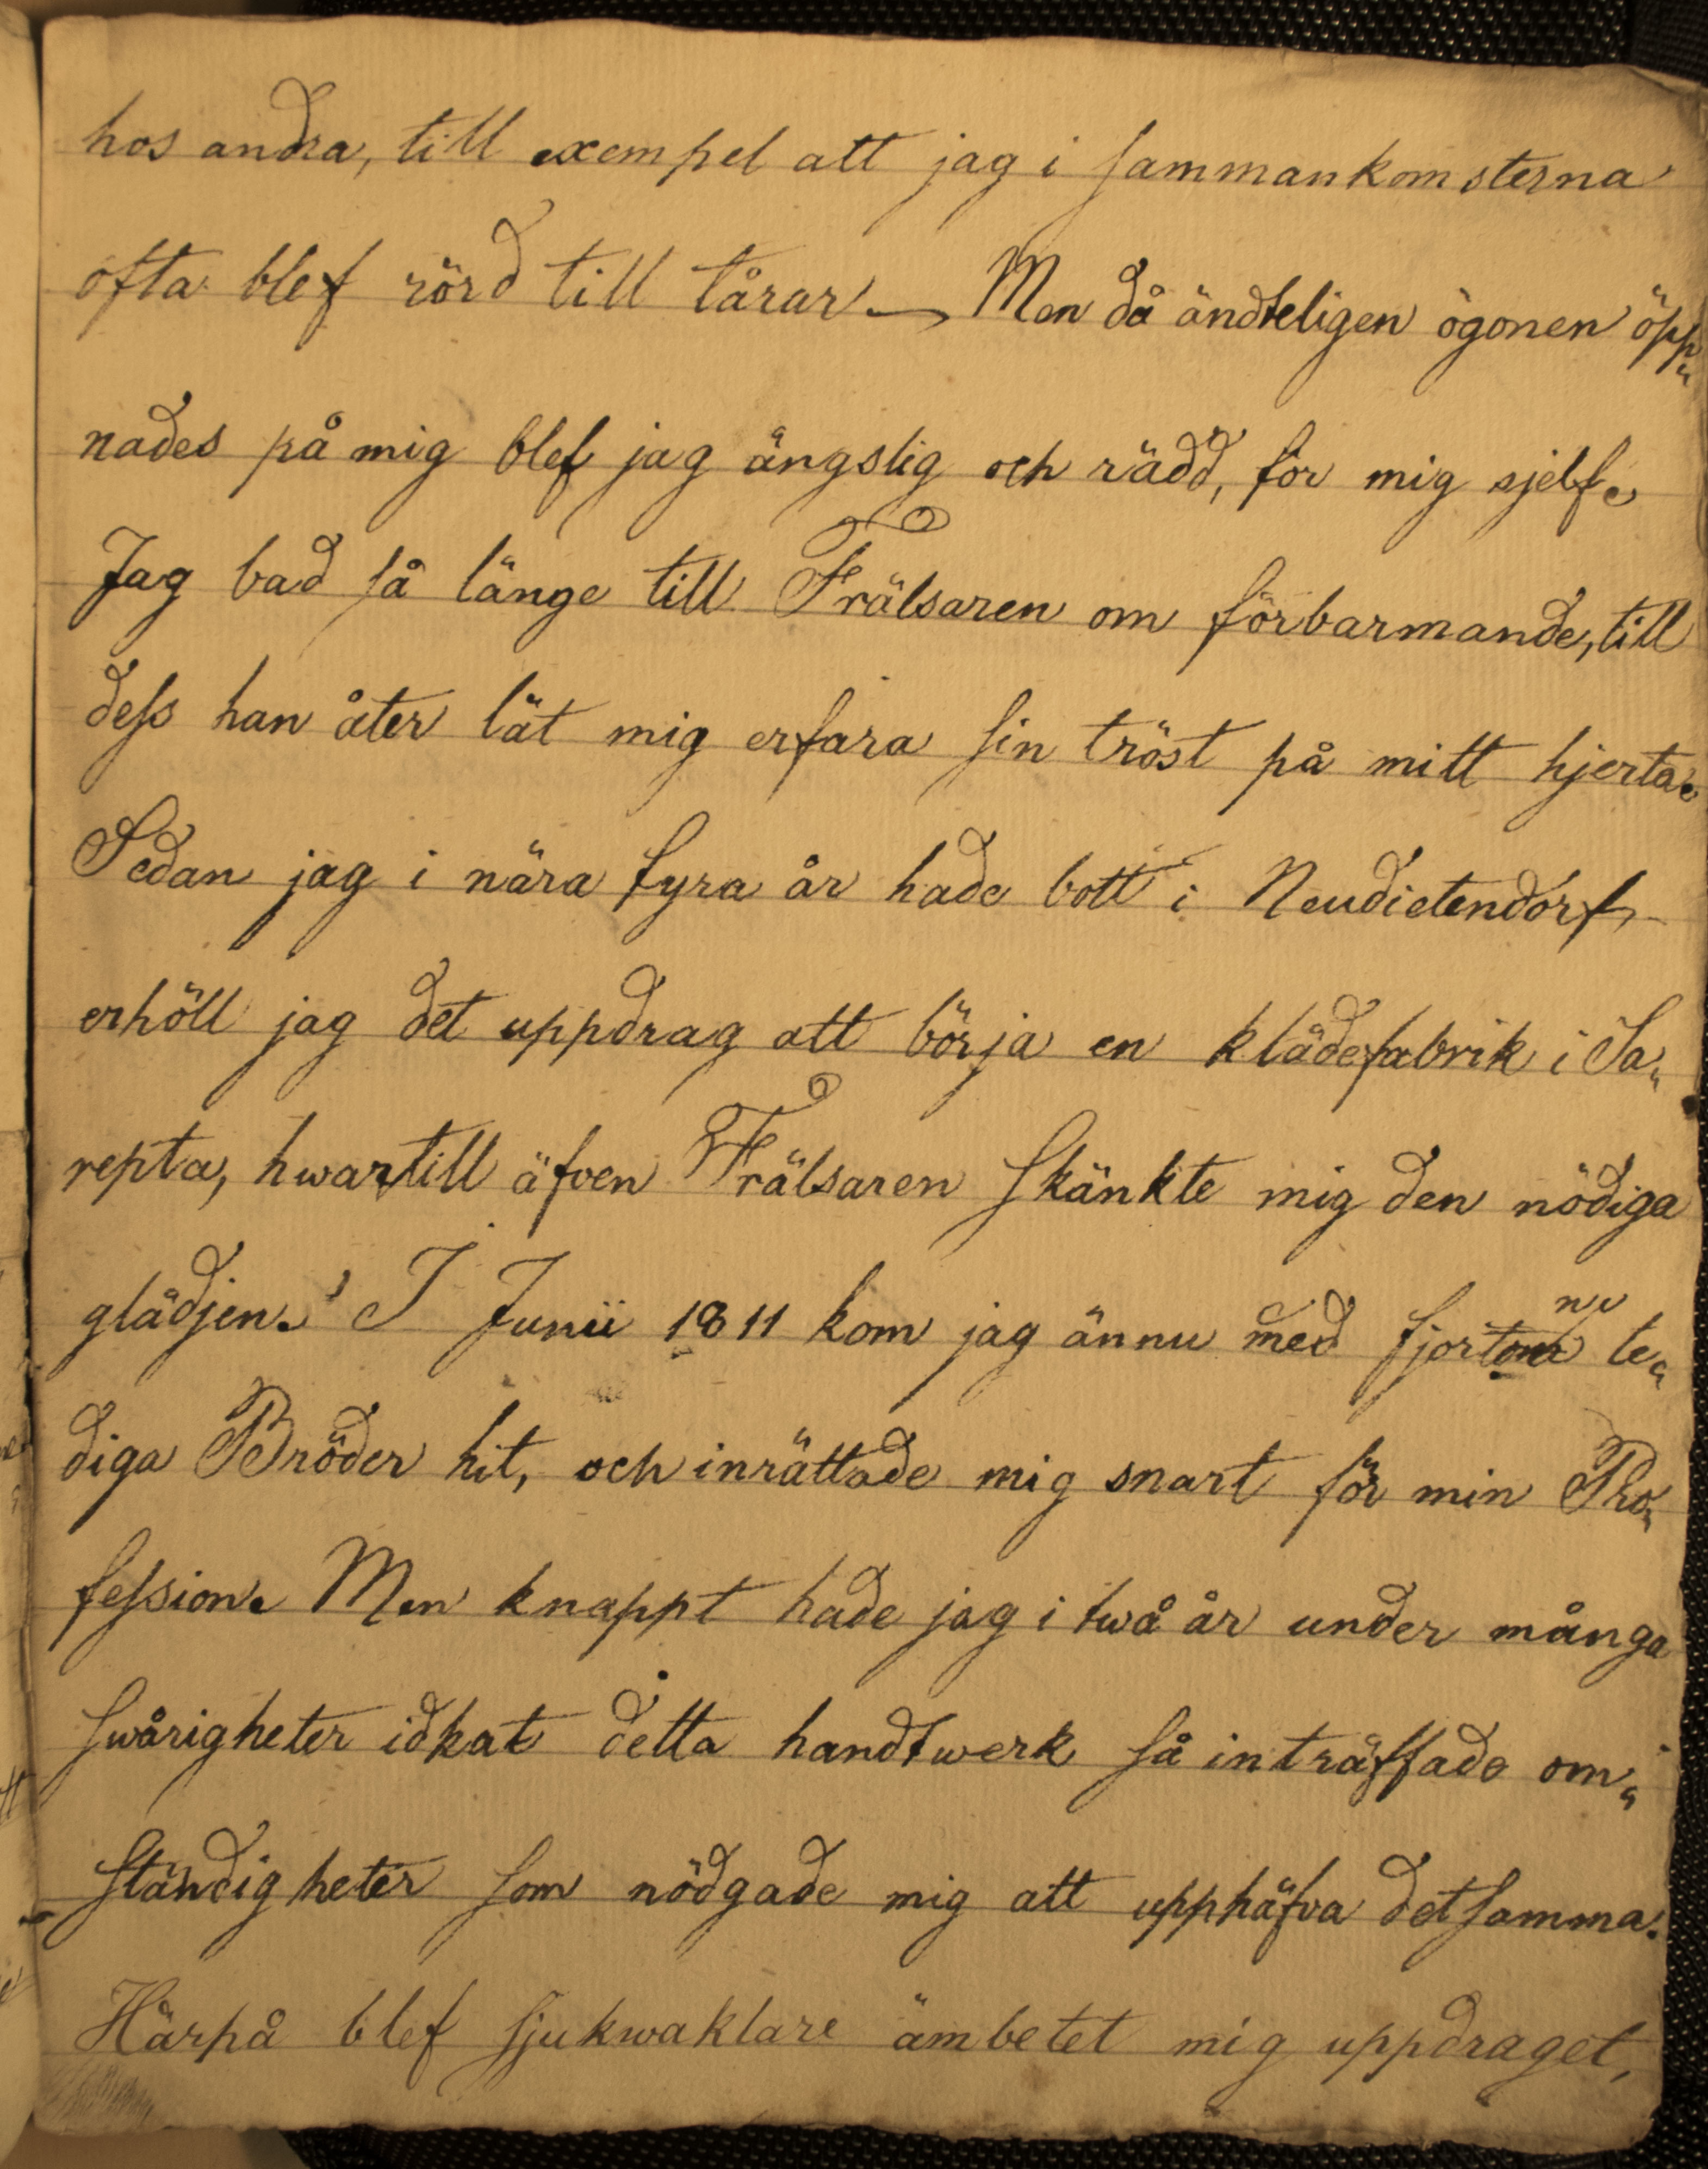 hos andra, till exempel att jag i sammankomsterna
ofta blef rörd till tårar. — Men då ändteligen ögonen öpp„
nades på mig blef jag ängslig och rädd, för mig sjelf.
Jag bad så länge till Frälsaren om förbarmande, till
dess han åter lät mig erfara sin tröst på mitt hjerta.
Sedan jag i nära fyra år hade bott i Neudietendorf,
erhöll jag det uppdrag att börja en klädefabrik i Sa„
repta, hwartill äfven Frälsaren skänkte mig den nödiga
glädjen. I Junii 1811 kom jag ännu med fjorton le„
diga Bröder hit, och inrättade mig snart för min Pro„
fession. Men knappt hade jag i twå år under många
swårigheter idkat detta handtwerk så inträffade om„
ständigheter som nödgade mig att upphäfva detsamma.
Härpå blef sjukwaktare ämbetet mig uppdraget,